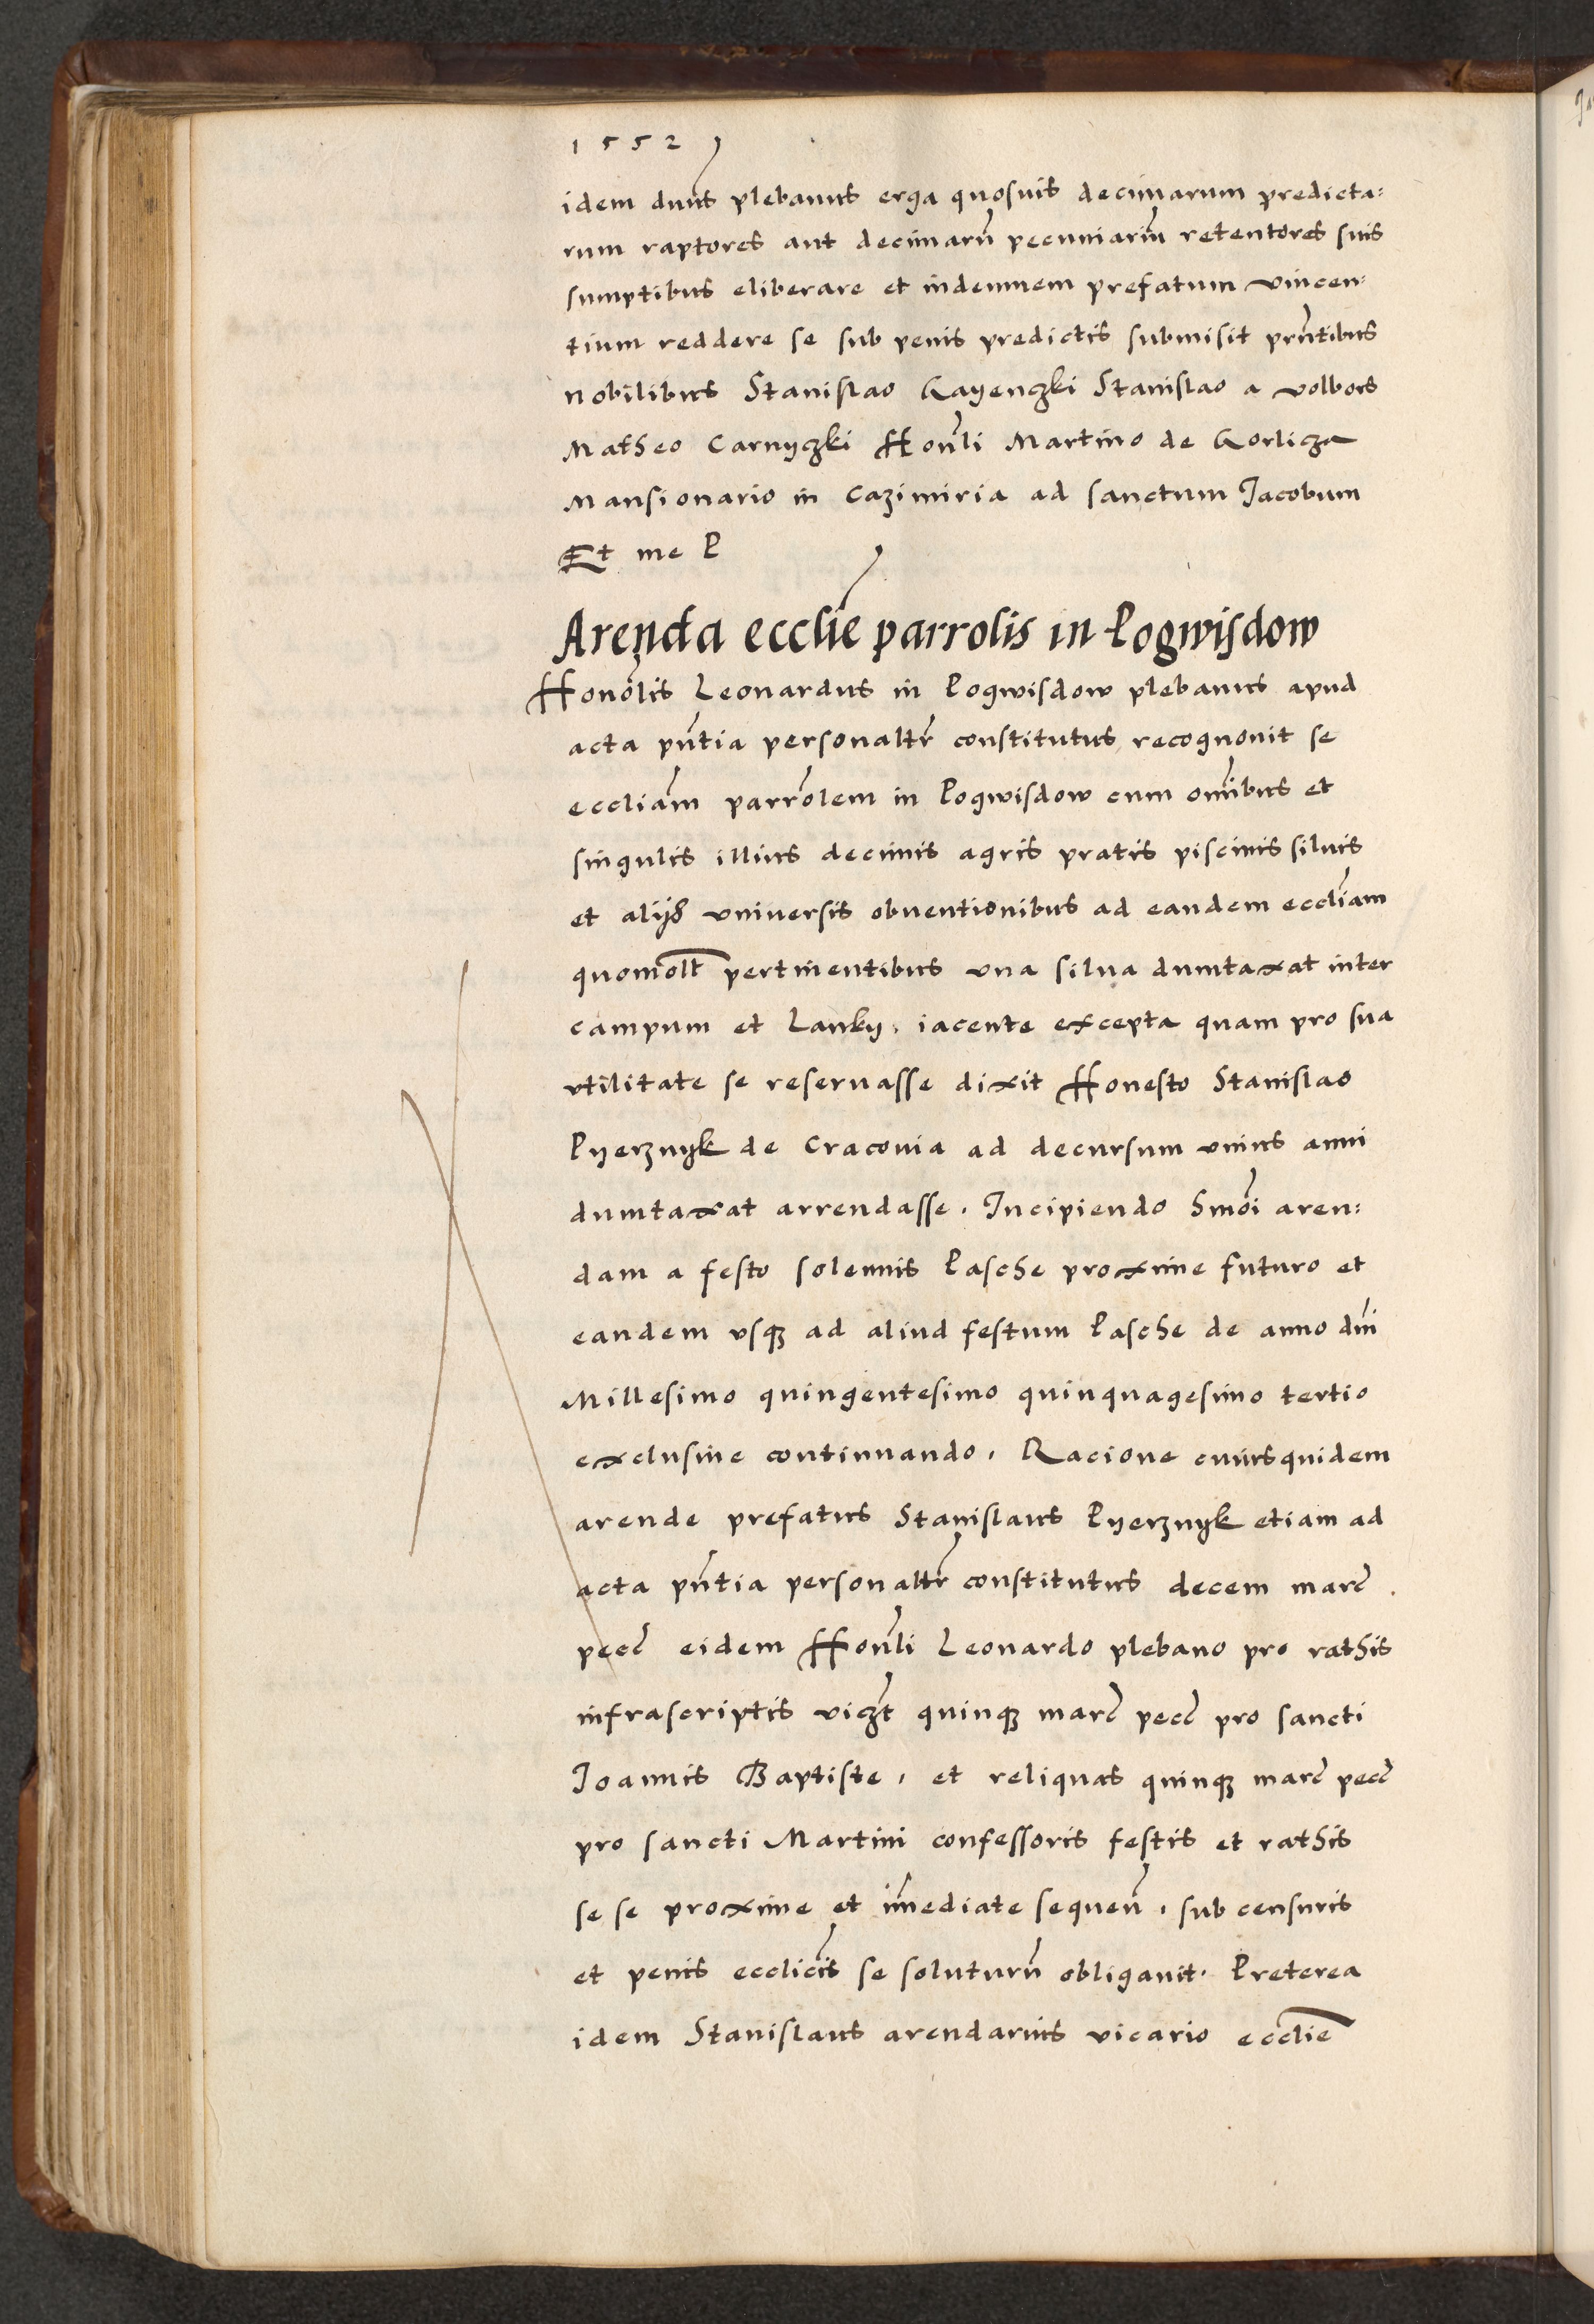 1552
idem dnus plebanus erga quosuis decimarum predicta:
rum raptores aut decimarũ pecuniariũ retentores suis
sumptibus eliberare et indemnem prefatum vincen:
tium reddere se sub penis predictis submisit prñtibus
nobilibus Stanislao Gayenczki Stanislao a volbors
Matheo Carnyczki Honli Martino de Gorlicza
Mansionario in Cazimiria ad sanctum Jacobum
Et me P
Arenda ecclie parrolis in Pogwisdow
Honolis Leonardus in Pogwisdow plebanus apud
acta pñtia personaltr constitutus recognouit se
eccliam parrolem in Pogwisdow cum omibus et
singulis illius decimis agris pratis piscinis siluis
et alijs vniversis obuentionibus ad eandem eccliam
quomolt pertinentibus vna silua dumtaxat inter
campum et Lanky, iacente excepta quam pro sua
vtilitate se reseruasse dixit Honesto Stanislao
Pyerznyk de Cracouia ad decursum vnius anni
dumtaxat arrendasse. Incipiendo hmoi aren:
dam a festo solennis Pasche proxime futuro et
eandem vsqz ad aliud festum Pasche de anno dni
Millesimo quingentesimo quinquagesimo tertio
exclusiue continuando. Racione cuiusquidem
arende prefatus Stanislaus Pyerznyk etiam ad
acta pñtia personaltr constitutus decem marc
pecc eidem Honli Leonardo plebano pro rathis
infrascriptis viczt quinqz marc pecc pro sancti
Joannis Baptiste, et reliquas quinqz marc pecc
pro sancti Martini confessoris festis et rathis
se se proxime et imediate sequeñ, sub censuris
et penis ecclicis se soluturũ obligauit. Preterea
idem Stanislaus arendarius vicario ecclie